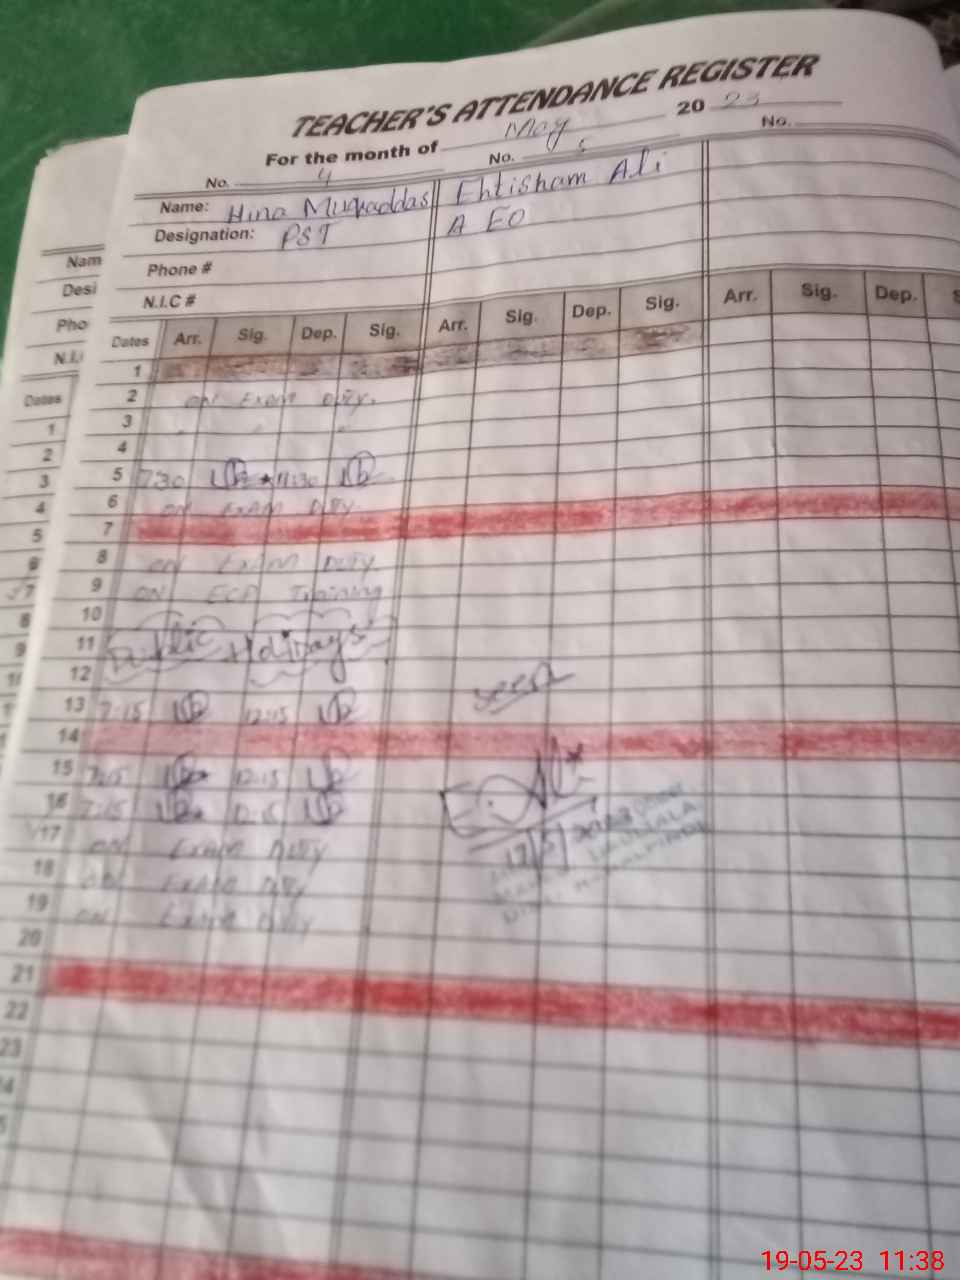 TEACHER'S ATTENDANCE REGISTER
For the month of May 20 23
No. 4 No. 5 No.
Name: Hina Muqaddas Ehtisham Ali
Designation: PST A EO
Phone #
N.I.C #
Dates Arr. Sig. Dep. Sig. Arr. Sig. Dep. Sig. Arr. Sig. Dep. S
1
2 ON Exam Duty.
3
4
5 7:30 11:30
6 ON EXAM Duty
7
8 ON Exam Duty
9 ON ECP Training
10
11 Public Holidays
12
13 7:15 12:15
seen
14
15 7:15 12:15
16 7:15 12:15
17 ON Exam Duty
17/5/2023
18 ON Exam Duty
19 ON Exam Duty
20
21
22
23
Nam
Desi
Pho
N.I.
Dates
1
2
3
4
5
6
7
8
9
19-05-23 11:38